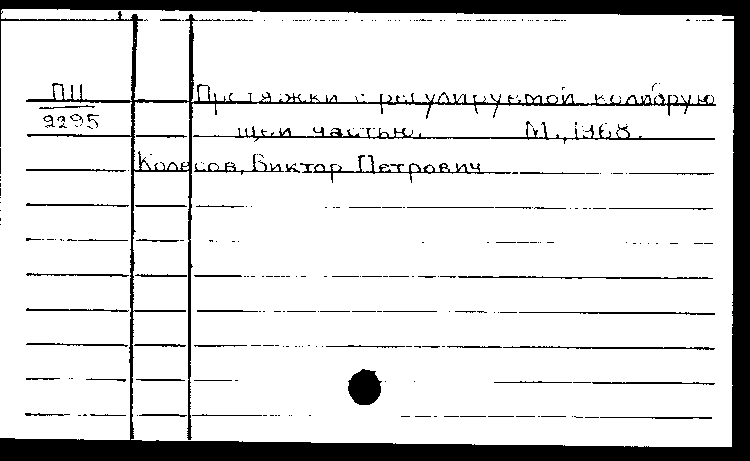 ПII
2295
Протяжки с регулируемой калибрую
щей частью. М., 1968.
Колесов, Виктор Петрович